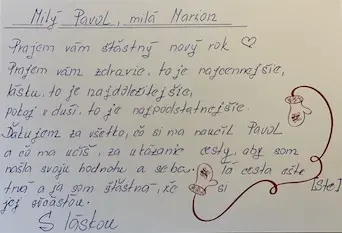 Milý Pavol, milá Marion
Prajem vám šťastný nový rok
Prajem vám zdravie, to je najcennejšie,
lásku, to je najdôležitejšie,
pokoj v duši, to je najpodstatnejšie.
Ďakujem za všetko, čo si ma naučil Pavol
a čo ma učíš, za ukázanie cesty, aby som
našla svoju hodnotu a seba. Tá cesta ešte
trvá a ja som šťastná, že si [Ste]
jej súčasťou.
S láskou